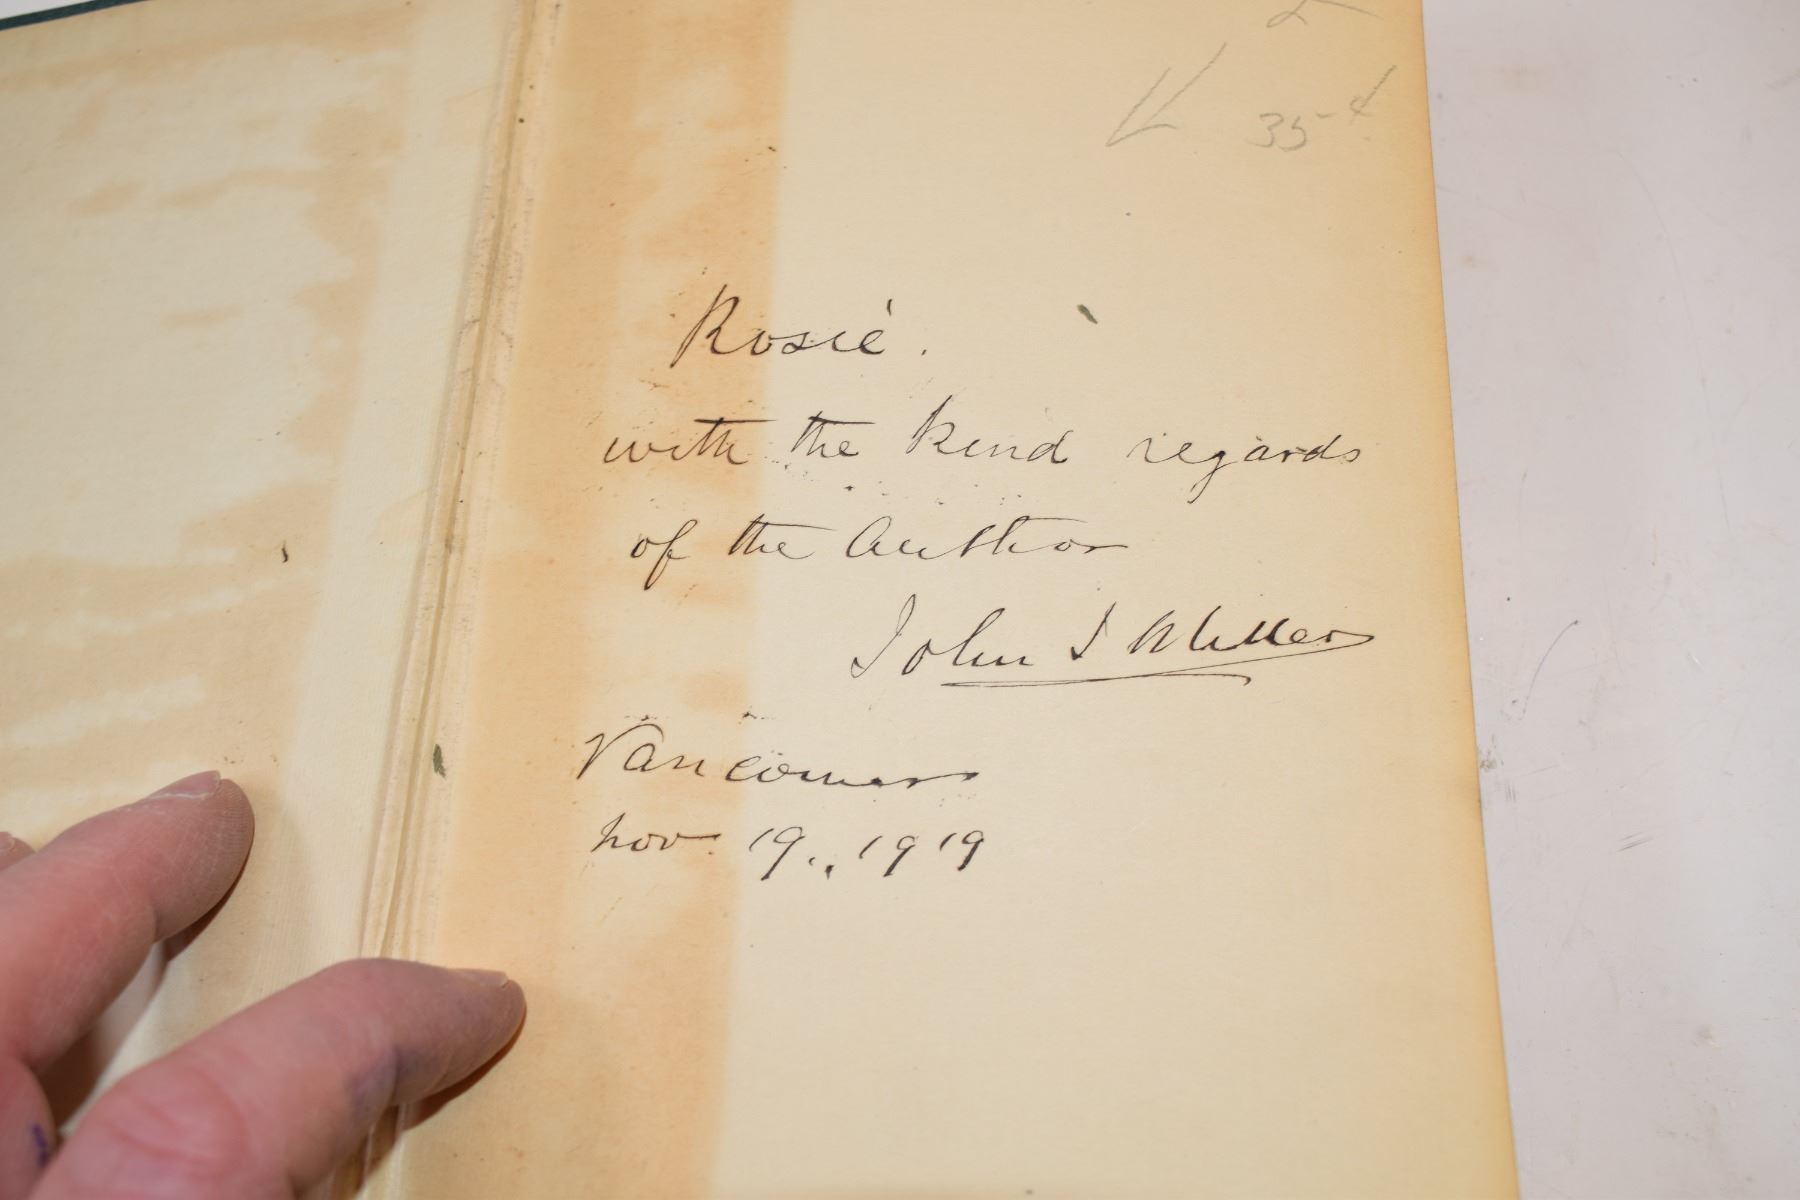 35-
Rosie.
with the kind regards
of the Author
John I Miller
Vancouver
Nov 19., 1919